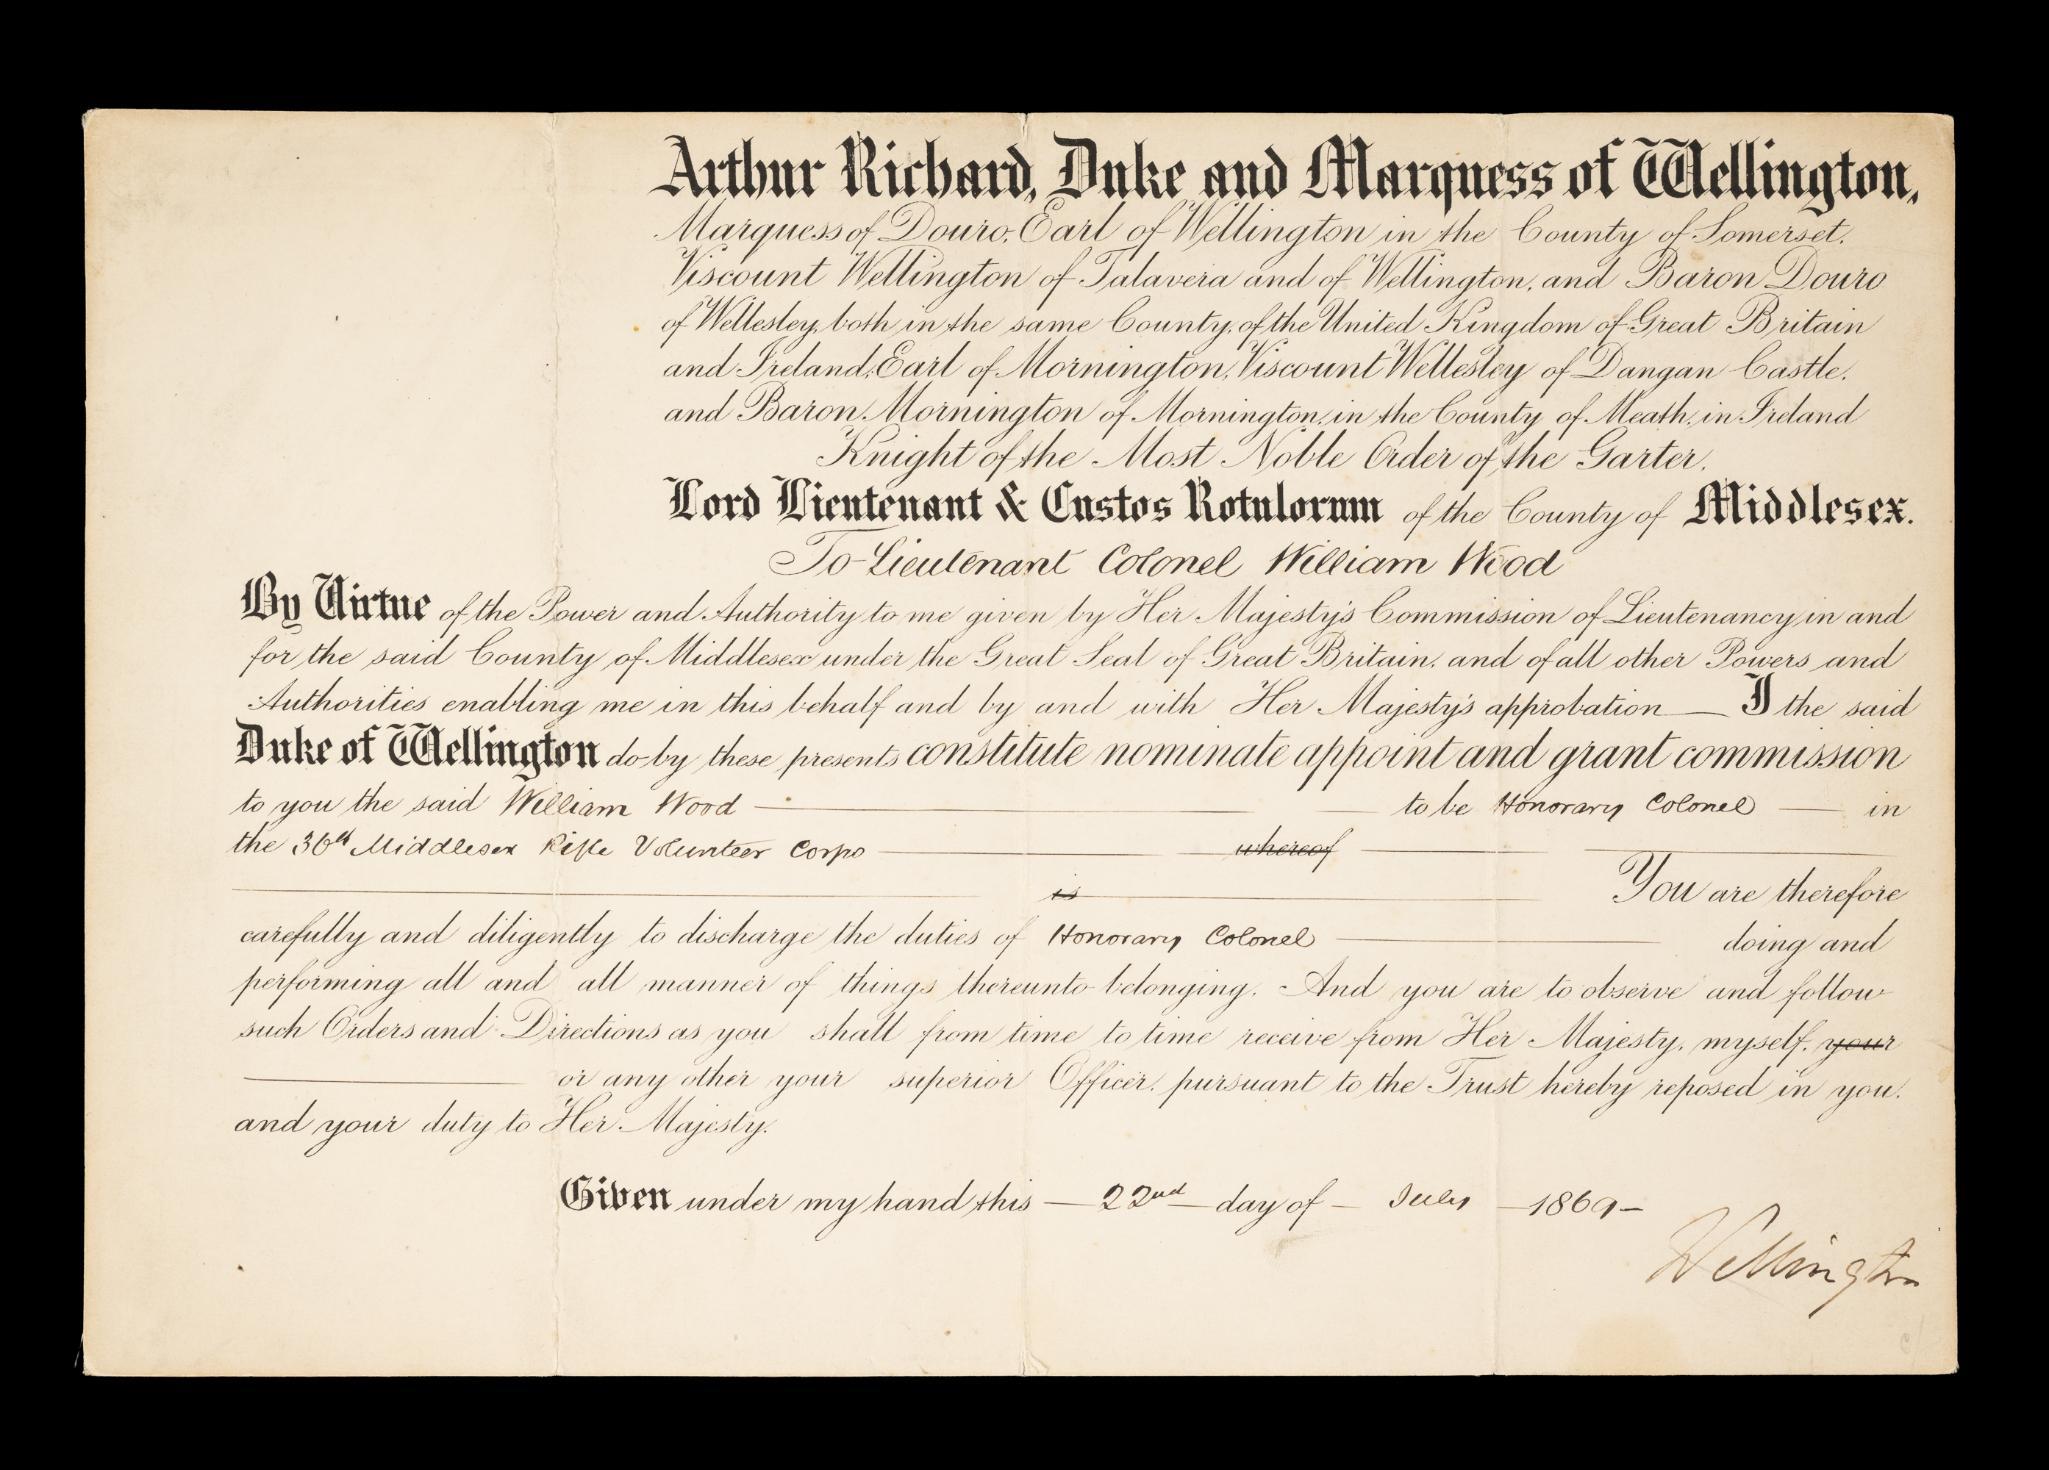 Arthur Richard, Duke and Marquess of Wellington,
Marquess of Douro, Earl of Wellington in the County of Somerset,
Viscount Wellington of Talavera and of Wellington, and Baron Douro
of Wellesley, both in the same County, of the United Kingdom of Great Britain
and Ireland, Earl of Mornington, Viscount Wellesley of Dangan Castle,
and Baron Mornington of Mornington, in the County of Meath, in Ireland
Knight of the Most Noble Order of the Garter,
Lord Lieutenant & Custos Rotulorum of the County of Middlesex.
To Lieutenant Colonel William Wood
By Virtue of the Power and Authority to me given by Her Majesty's Commission of Lieutenancy in and
for the said County of Middlesex under the Great Seal of Great Britain, and of all other Powers and
Authorities enabling me in this behalf and by and with Her Majesty's approbation — I the said
Duke of Wellington do by these presents constitute nominate appoint and grant commission
to you the said William Wood — to be Honorary Colonel — in
the 36th Middlesex Rifle Volunteer Corps — whereof —
is — You are therefore
carefully and diligently to discharge the duties of Honorary Colonel — doing and
performing all and all manner of things thereunto belonging. And you are to observe and follow
such Orders and Directions as you shall from time to time receive from Her Majesty, myself, your
— or any other your superior Officer, pursuant to the Trust hereby reposed in you,
and your duty to Her Majesty.
Given under my hand this — 22nd — day of — July — 1869 —
Wellington